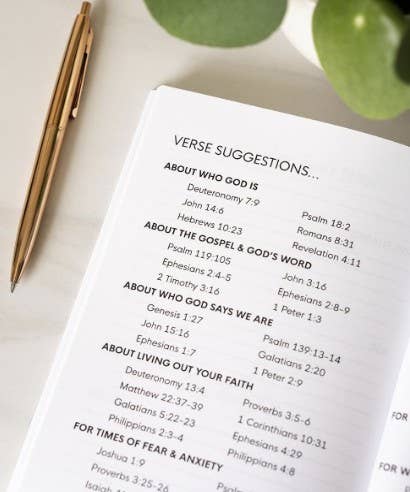 VERSE SUGGESTIONS...
ABOUT WHO GOD IS
Deuteronomy 7:9
John 14:6
Hebrews 10:23
Psalm 18:2
Romans 8:31
Revelation 4:11
ABOUT THE GOSPEL & GOD'S WORD
Psalm 119:105
Ephesians 2:4-5
2 Timothy 3:16
John 3:16
Ephesians 2:8-9
1 Peter 1:3
ABOUT WHO GOD SAYS WE ARE
Genesis 1:27
John 15:16
Ephesians 1:7
Psalm 139:13-14
Galatians 2:20
1 Peter 2:9
ABOUT LIVING OUT YOUR FAITH
Deuteronomy 13:4
Matthew 22:37-39
Galatians 5:22-23
Philippians 2:3-4
Proverbs 3:5-6
1 Corinthians 10:31
Ephesians 4:29
Philippians 4:8
FOR TIMES OF FEAR & ANXIETY
Joshua 1:9
Proverbs 3:25-26
Isaiah
FOR
FOR W